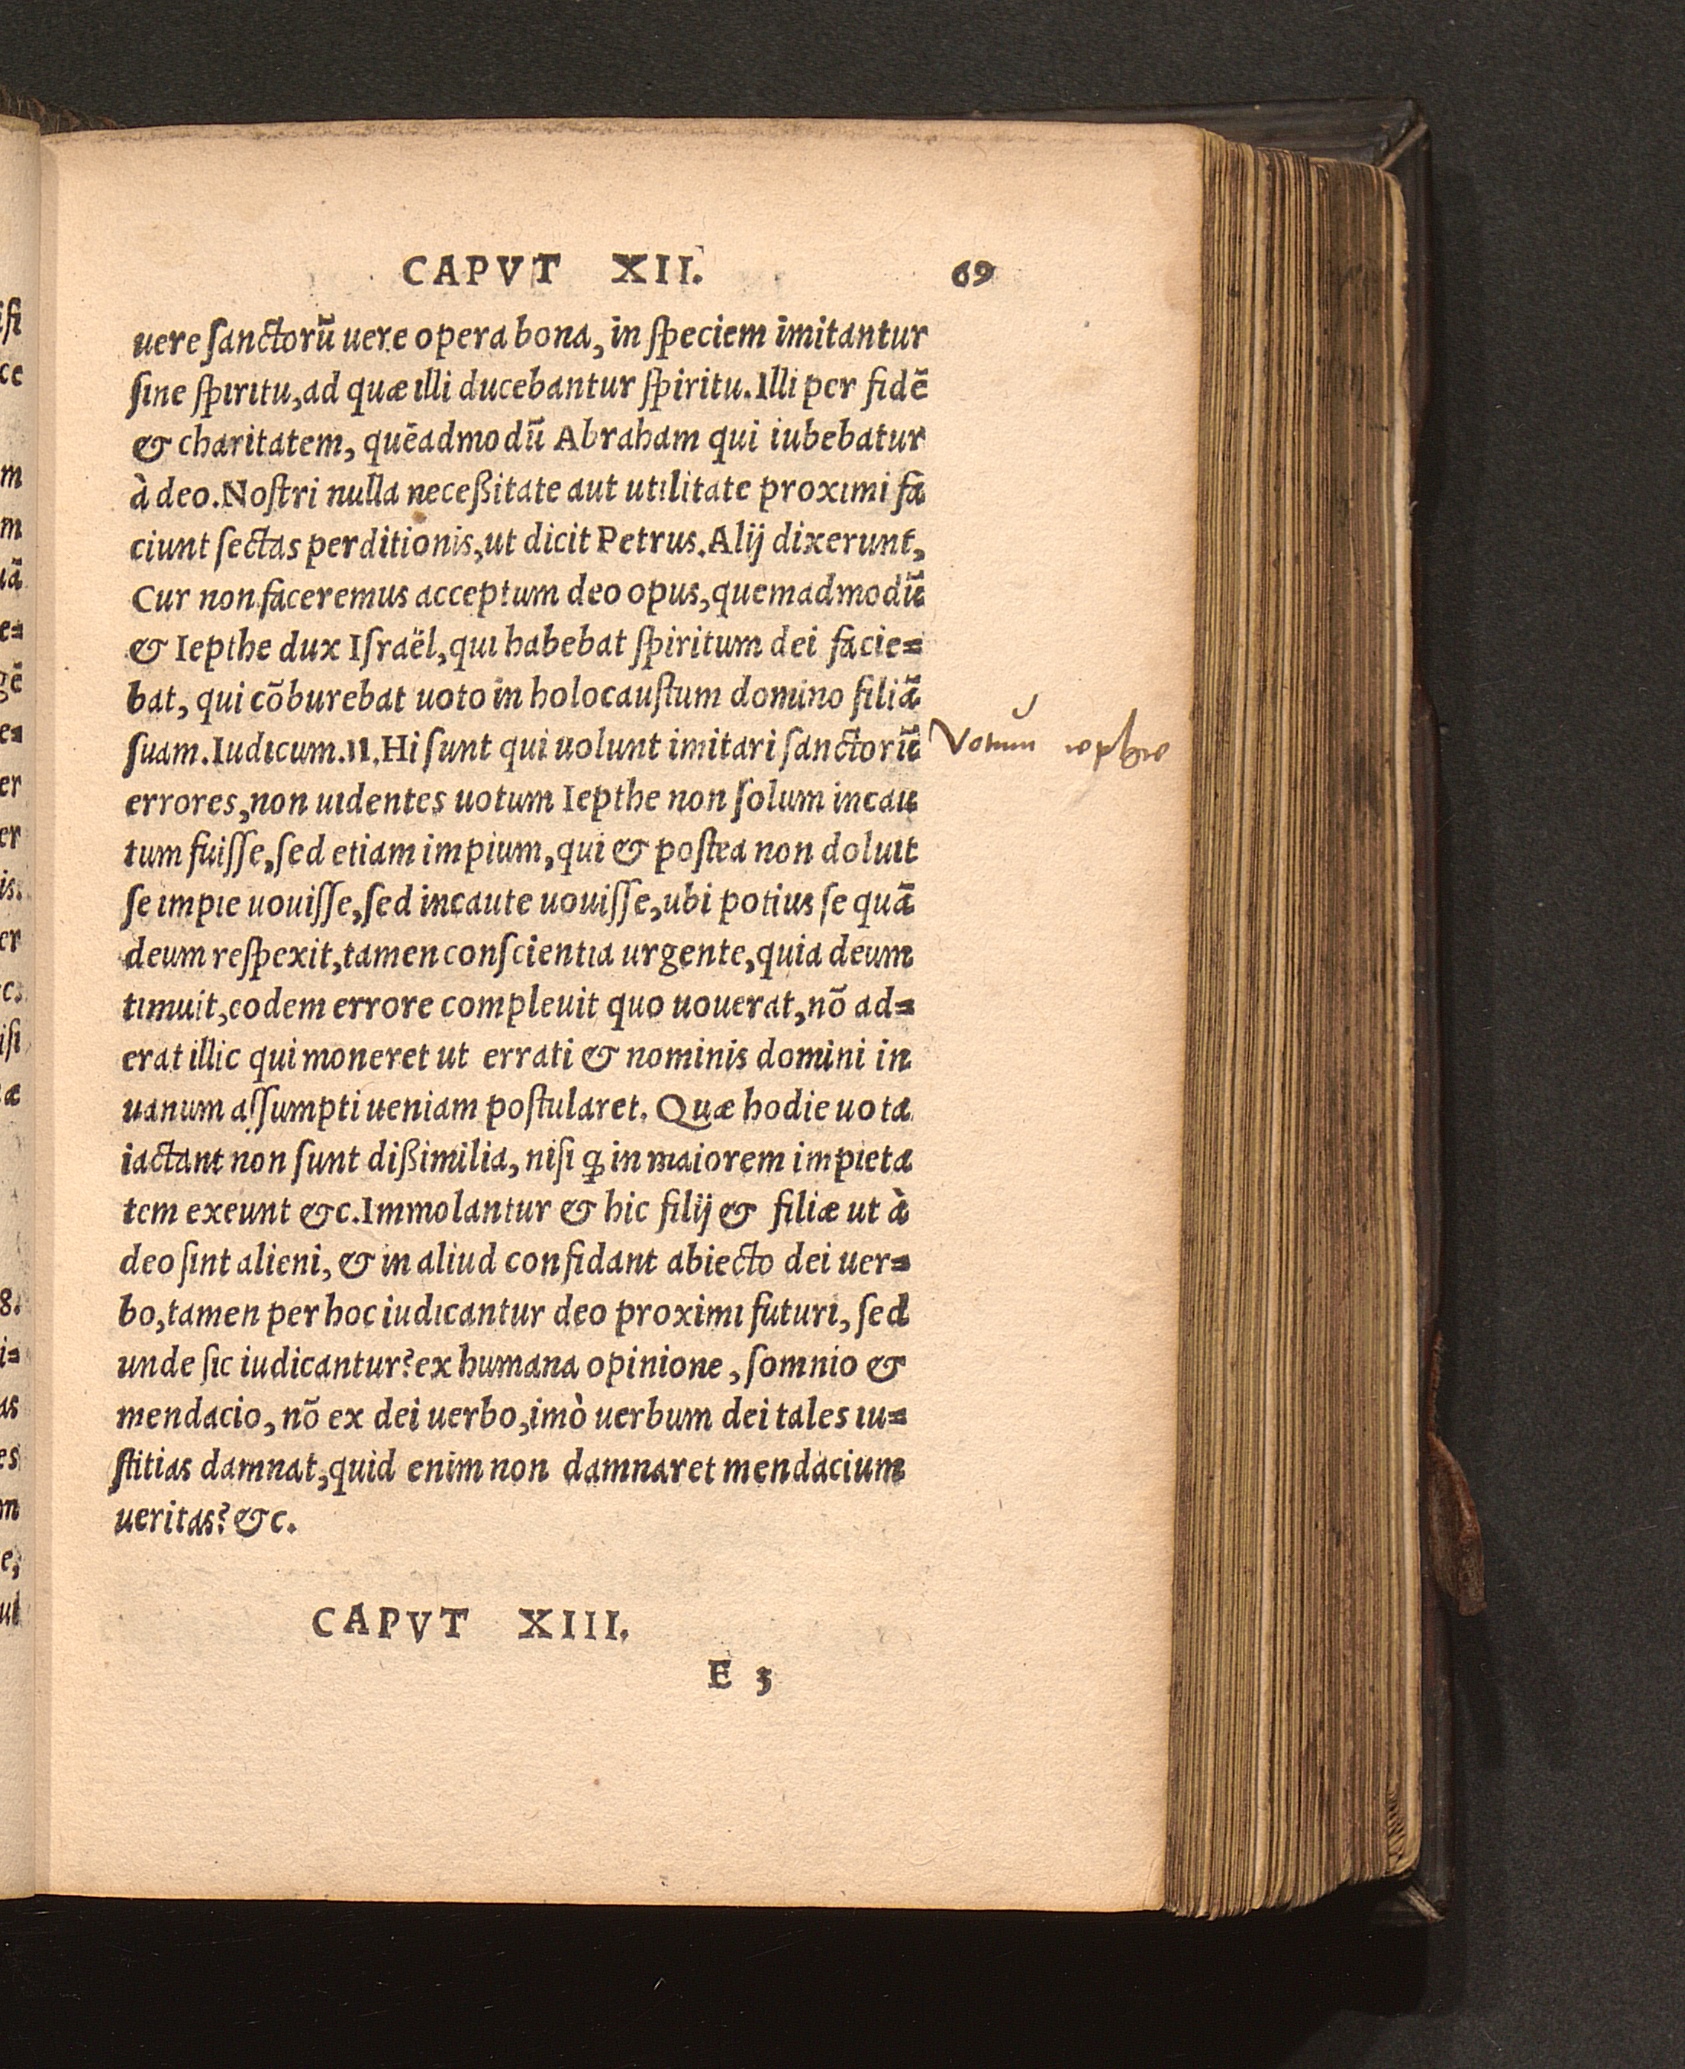 CAPVT XII. 69
uere ſanctorũ uere opera bona, in ſpeciem imitantur
ſine ſpiritu, ad quæ illi ducebantur ſpiritu. Illi per fidẽ
& charitatem, quẽadmodũ Abraham qui iubebatur
à deo. Noſtri nulla neceßitate aut utilitate proximi fa
ciunt ſectas perditionis, ut dicit Petrus. Alij dixerunt,
Cur non faceremus acceptum deo opus, quemadmodũ
& Iepthe dux Iſraël, qui habebat ſpiritum dei facie=
bat, qui cõburebat uoto in holocauſtum domino filiã
ſuam. Iudicum. 11. Hi ſunt qui uolunt imitari ſanctorũ
Votum iepthe
errores, non uidentes uotum Iepthe non ſolum incau
tum fuiſſe, ſed etiam impium, qui & poſtea non doluit
ſe impie uouiſſe, ſed incaute uouiſſe, ubi potius ſe quã
deum reſpexit, tamen conſcientia urgente, quia deum
timuit, eodem errore compleuit quo uouerat, nõ ad=
erat illic qui moneret ut errati & nominis domini in
uanum aſſumpti ueniam poſtularet. Quæ hodie uota
iactant non ſunt dißimilia, niſi ꝙ in maiorem impieta
tem exeunt &c. Immolantur & hic filij & filiæ ut à
deo ſint alieni, & in aliud confidant abiecto dei uer=
bo, tamen per hoc iudicantur deo proximi futuri, ſed
unde ſic iudicantur? ex humana opinione, ſomnio &
mendacio, nõ ex dei uerbo, imò uerbum dei tales iu=
ſtitias damnat, quid enim non damnaret mendacium
ueritas? &c.
CAPVT XIII.
E 3